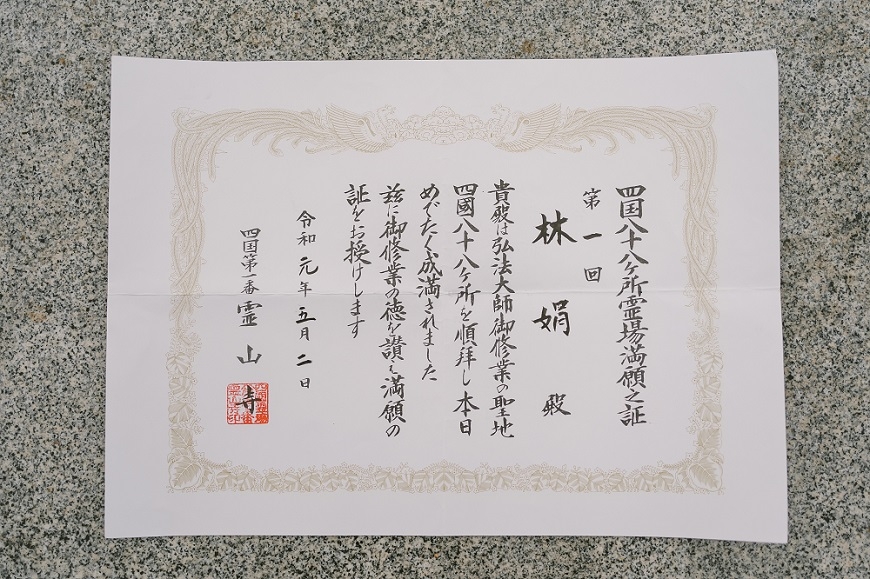 四国八十八ヶ所霊場満願之証
第一回
林娟殿
貴殿は弘法大師御修業の聖地
四國八十八ヶ所を順拝し本日
めでたく成満されました
茲に御修業の徳を讃え満願の
証をお授けします
令和元年五月二日
四国第一番霊山寺